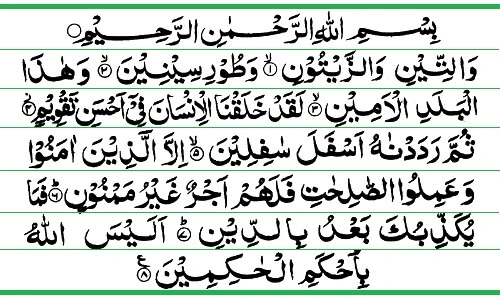 بِسْمِ اللهِ الرَّحْمٰنِ الرَّحِيْمِ ○
وَالتِّيْنِ وَالزَّيْتُوْنِ ۙ﴿۱﴾ وَطُوْرِ سِيْنِيْنَ ۙ﴿۲﴾ وَهٰذَا
الْبَلَدِ الْاَمِيْنِ ۙ﴿۳﴾ لَقَدْ خَلَقْنَا الْاِنْسَانَ فِيْۤ اَحْسَنِ تَقْوِيْمٍ ۫﴿۴﴾
ثُمَّ رَدَدْنٰهُ اَسْفَلَ سٰفِلِيْنَ ۙ﴿۵﴾ اِلَّا الَّذِيْنَ اٰمَنُوْا
وَعَمِلُوا الصّٰلِحٰتِ فَلَهُمْ اَجْرٌ غَيْرُ مَمْنُوْنٍ ؕ﴿۶﴾ فَمَا
يُكَذِّبُكَ بَعْدُ بِالدِّيْنِ ؕ﴿۷﴾ اَلَيْسَ اللهُ
بِاَحْكَمِ الْحٰكِمِيْنَ ﴿۸﴾ ع